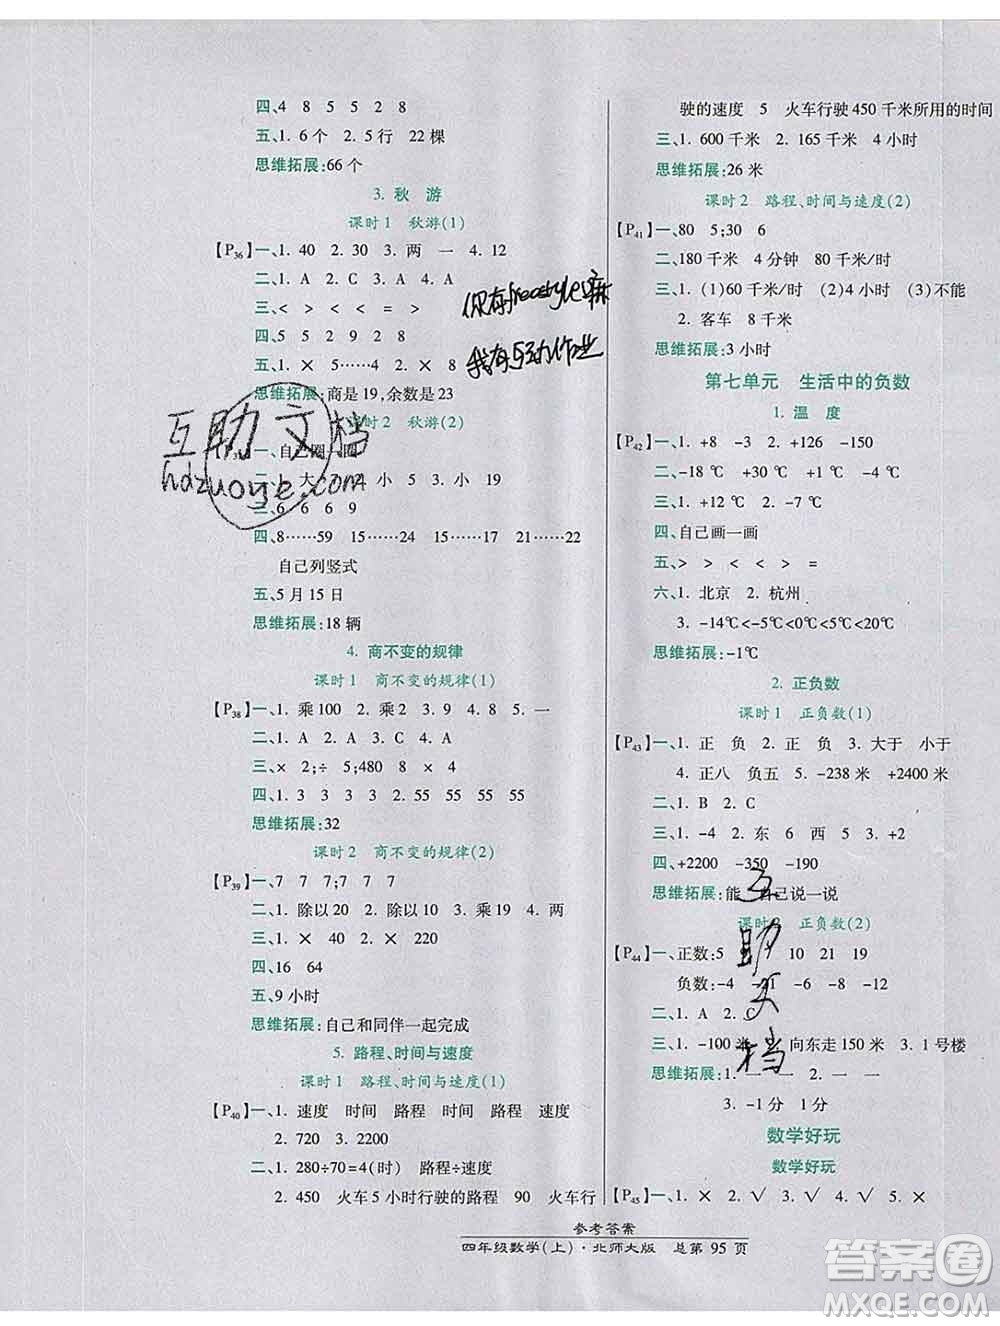 四、4 8 5 5 2 8
五、1. 6个 2. 5行 22棵
思维拓展:66个
3. 秋 游
课时1 秋游(1)
【P36】一、1. 40 2. 30 3. 两 一 4. 12
二、1. A 2. C 3. A 4. C
三、< > < < = >
四、5 5 2 9 2 8
五、1. × 5……4 2. × 8
思维拓展:商是19,余数是23
课时2 秋游(2)
一、自己圈一圈
小 5 3. 小 19
三、6 6 6 9
四、8……59 15……46 17……22 21……22
自己列竖式
五、5月15日
思维拓展:18辆
4. 商不变的规律
课时1 商不变的规律(1)
【P38】一、1. 乘100 2. 乘2 3. 9 4. 9 5. 一
二、1. C 2. A 3. A 4. C
三、× 2;÷ 5;480 8 8
四、1. 3 3 3 3 2. 55 55 55 55
思维拓展:32
课时2 商不变的规律(2)
【P39】一、7 7 7;7 7 7
二、1. 除以20 2. 除以10 3. 乘19 4. 两
三、1. × 40 2. × 220
四、16 64
五、9小时
思维拓展:自己和同伴一起完成
5. 路程、时间与速度
课时1 路程、时间与速度(1)
【P40】一、1. 速度 时间 路程 时间 路程 速度
2. 720 3. 2200
二、1. 280÷70=4(时) 路程÷速度
2. 450 火车5小时行驶的路程 90 火车行
驶的速度 5 火车行驶450千米所用的时间
三、1. 600千米 2. 165千米 4小时
思维拓展:26米
课时2 路程、时间与速度(2)
【P41】一、80 5;30 6
二、180千米 4分钟 80千米/时
三、1. (1)60千米/时 (2)4小时 (3)不能
2. 客车 8千米
思维拓展:3小时
第七单元 生活中的负数
1. 温 度
【P42】一、1. +8 -3 2. +126 -150
二、-18℃ +30℃ +1℃ -4℃
三、1. +12℃ 2. -7℃
四、自己画一画
五、> > < < > =
六、1. 北京 2. 杭州
3. -14℃<-5℃<0℃<5℃<20℃
思维拓展:-1℃
2. 正负数
课时1 正负数(1)
【P43】一、1. 正 负 2. 正 负 3. 大于 小于
4. 正八 负五 5. -238米 +2400米
二、1. B 2. C
三、1. -4 2. 东 6 西 5 3. +2
四、+2200 -350 -190
思维拓展:能 自己说一说
课时2 正负数(2)
【P44】一、正数:5 10 21 19
负数:-4 -21 -6 -8 -12
二、1. A 2. C
三、1. -100米 2. 向东走150米 3. 1号楼
思维拓展:1. 一 一 2. 一 一
3. -1分 1分
数学好玩
数学好玩
【P45】一、1. × 2. √ 3. √ 4. √ 5. ×
参考答案
四年级数学(上)·北师大版 总第95页
你有freestyle嘛
我有互动作业
互助文档
hdzuoye.com
互助文档
答案圈
MXQE.COM